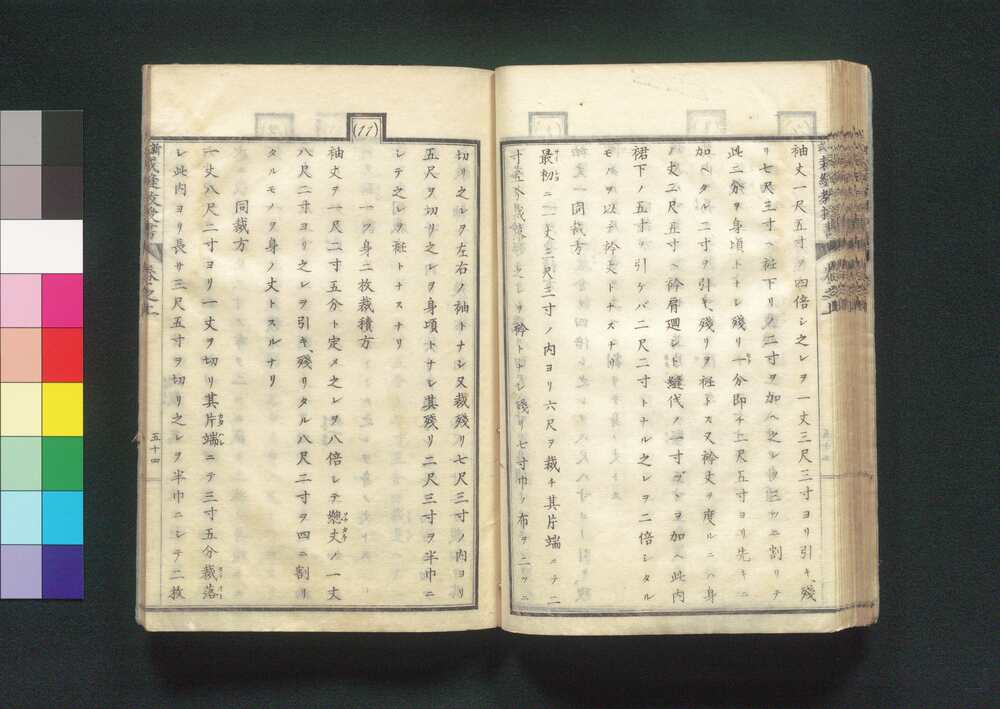 袖丈一尺五寸ヲ四倍シ之レヲ一丈三尺三寸ヨリ引キ殘
リ七尺三寸ヘ衽下リノ二寸ヲ加ヘ之レヲ三ツニ割リテ
此二分ヲ身頃トナシ殘リ一分即チ二尺五寸ヨリ先キニ
加ヘタル二寸ヲ引キ殘リヲ衽トス又衿丈ヲ度ルニハ身
丈二尺五寸ヘ衿肩廻シト縫代ノ一寸ヅヽヲ加ヘ此内
裙下ノ五寸ヲ引ケバ二尺二寸トナル之レヲ二倍シタル
モノヲ以テ衿丈トナスナリ
同裁方
最初ニ一丈三尺三寸ノ内ヨリ六尺ヲ裁チ其片端ニテ二
寸五分裁落シ之レヲ衿トナシ殘リ七寸巾ノ布ヲ二ツニ
切リ之レヲ左右ノ袖トナシ又裁殘リ七尺三寸ノ内ヨリ
五尺ヲ切リ之レヲ身頃トナシ其殘リ二尺三寸ヲ半巾ニ
シテ之レヲ衽トナスナリ
(11)
一ツ身二枚裁積方
袖丈ヲ一尺二寸五分ト定メ之レヲ八倍シテ總丈ノ一丈
八尺二寸ヨリ之レヲ引キ殘リタル八尺二寸ヲ四ニ割リ
タルモノヲ身ノ丈トスルナリ
同裁方
一丈八尺二寸ヨリ一丈ヲ切リ其片端ニテ三寸五分裁落
シ此内ヨリ長サ三尺五寸ヲ切リ之レヲ半巾ニシテ二枚
卷之上
五十四